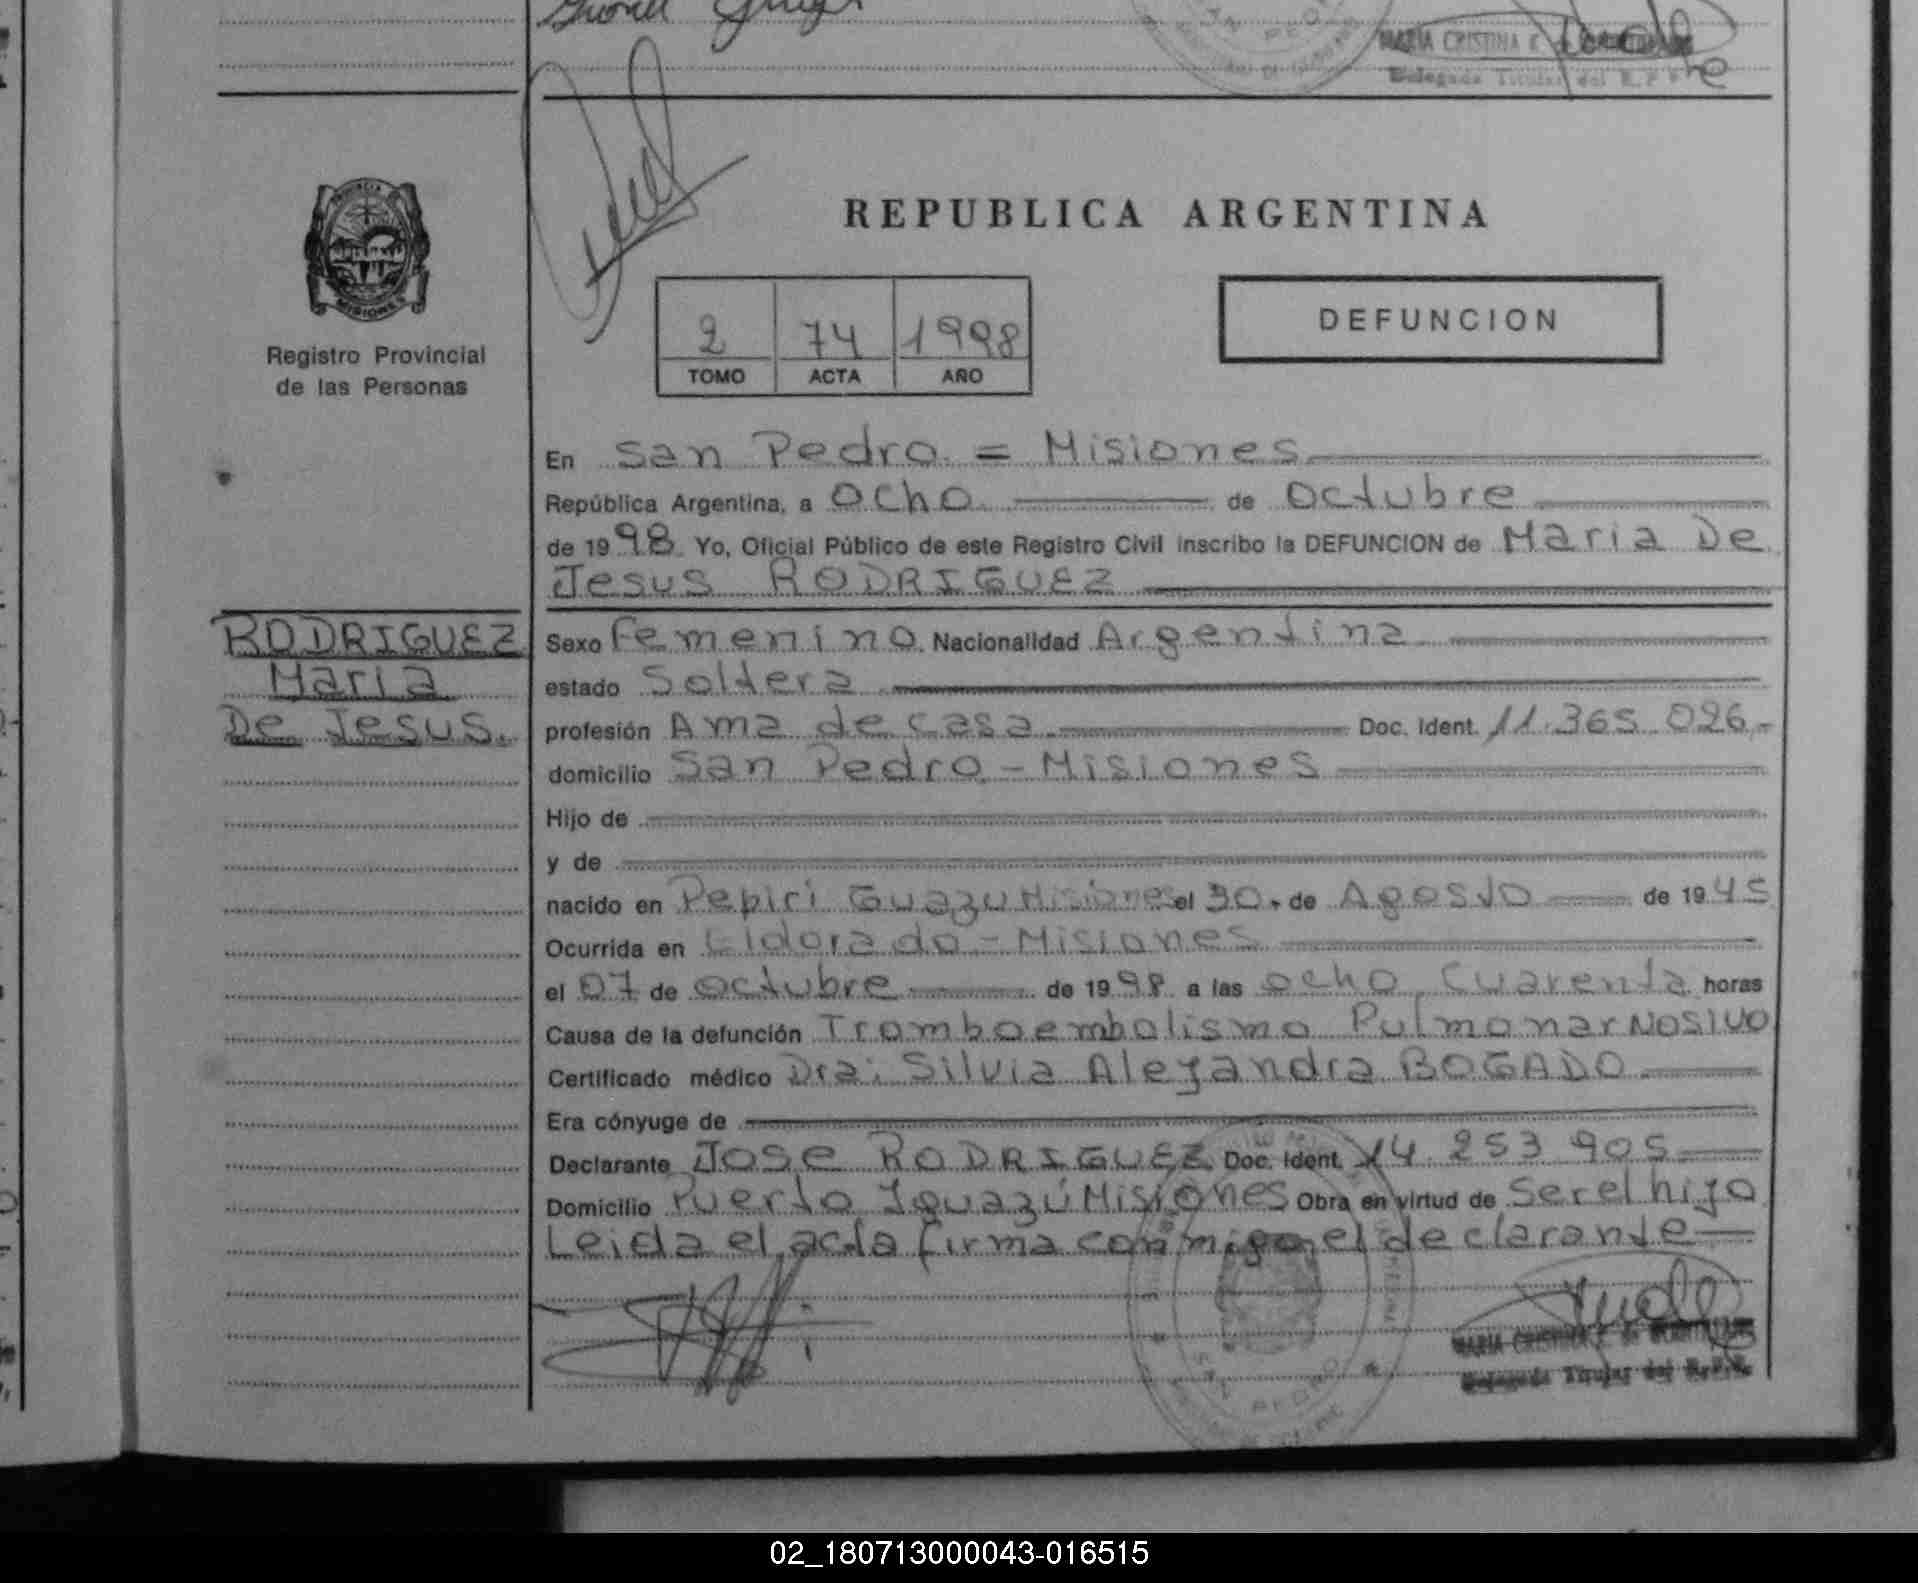 MARIA CRISTINA
Delegada Titular del R.P.P.
PROVINCIA
MISIONES
Registro Provincial
de las Personas
REPUBLICA ARGENTINA
2 74 1998
TOMO ACTA AÑO
DEFUNCION
En San Pedro = Misiones
República Argentina, a Ocho de Octubre
de 1998 Yo, Oficial Público de este Registro Civil inscribo la DEFUNCION de Maria De
Jesus RODRIGUEZ
RODRIGUEZ
Maria
De Jesus.
Sexo Femenino Nacionalidad Argentina
estado Soltera
profesión Ama de casa Doc. Ident. 11.365.026.-
domicilio San Pedro - Misiones
Hijo de
y de
nacido en Pepiri Guazu Misiones el 30. de Agosto de 1945
Ocurrida en Eldorado - Misiones
el 07 de Octubre de 1998 a las ocho, Cuarenta horas
Causa de la defunción Tromboembolismo Pulmonar Nosivo
Certificado médico Dra: Silvia Aleyandra BOGADO
Era cónyuge de
Declarante Jose RODRIGUEZ Doc. Ident. 14.253.905
Domicilio Puerto Iguazú Misiones Obra en virtud de Ser el hijo
Leida el acta firma conmigo el declarante
SAN PEDRO
MARIA CRISTINA
Delegada Titular del R.P.P.
02_180713000043-016515